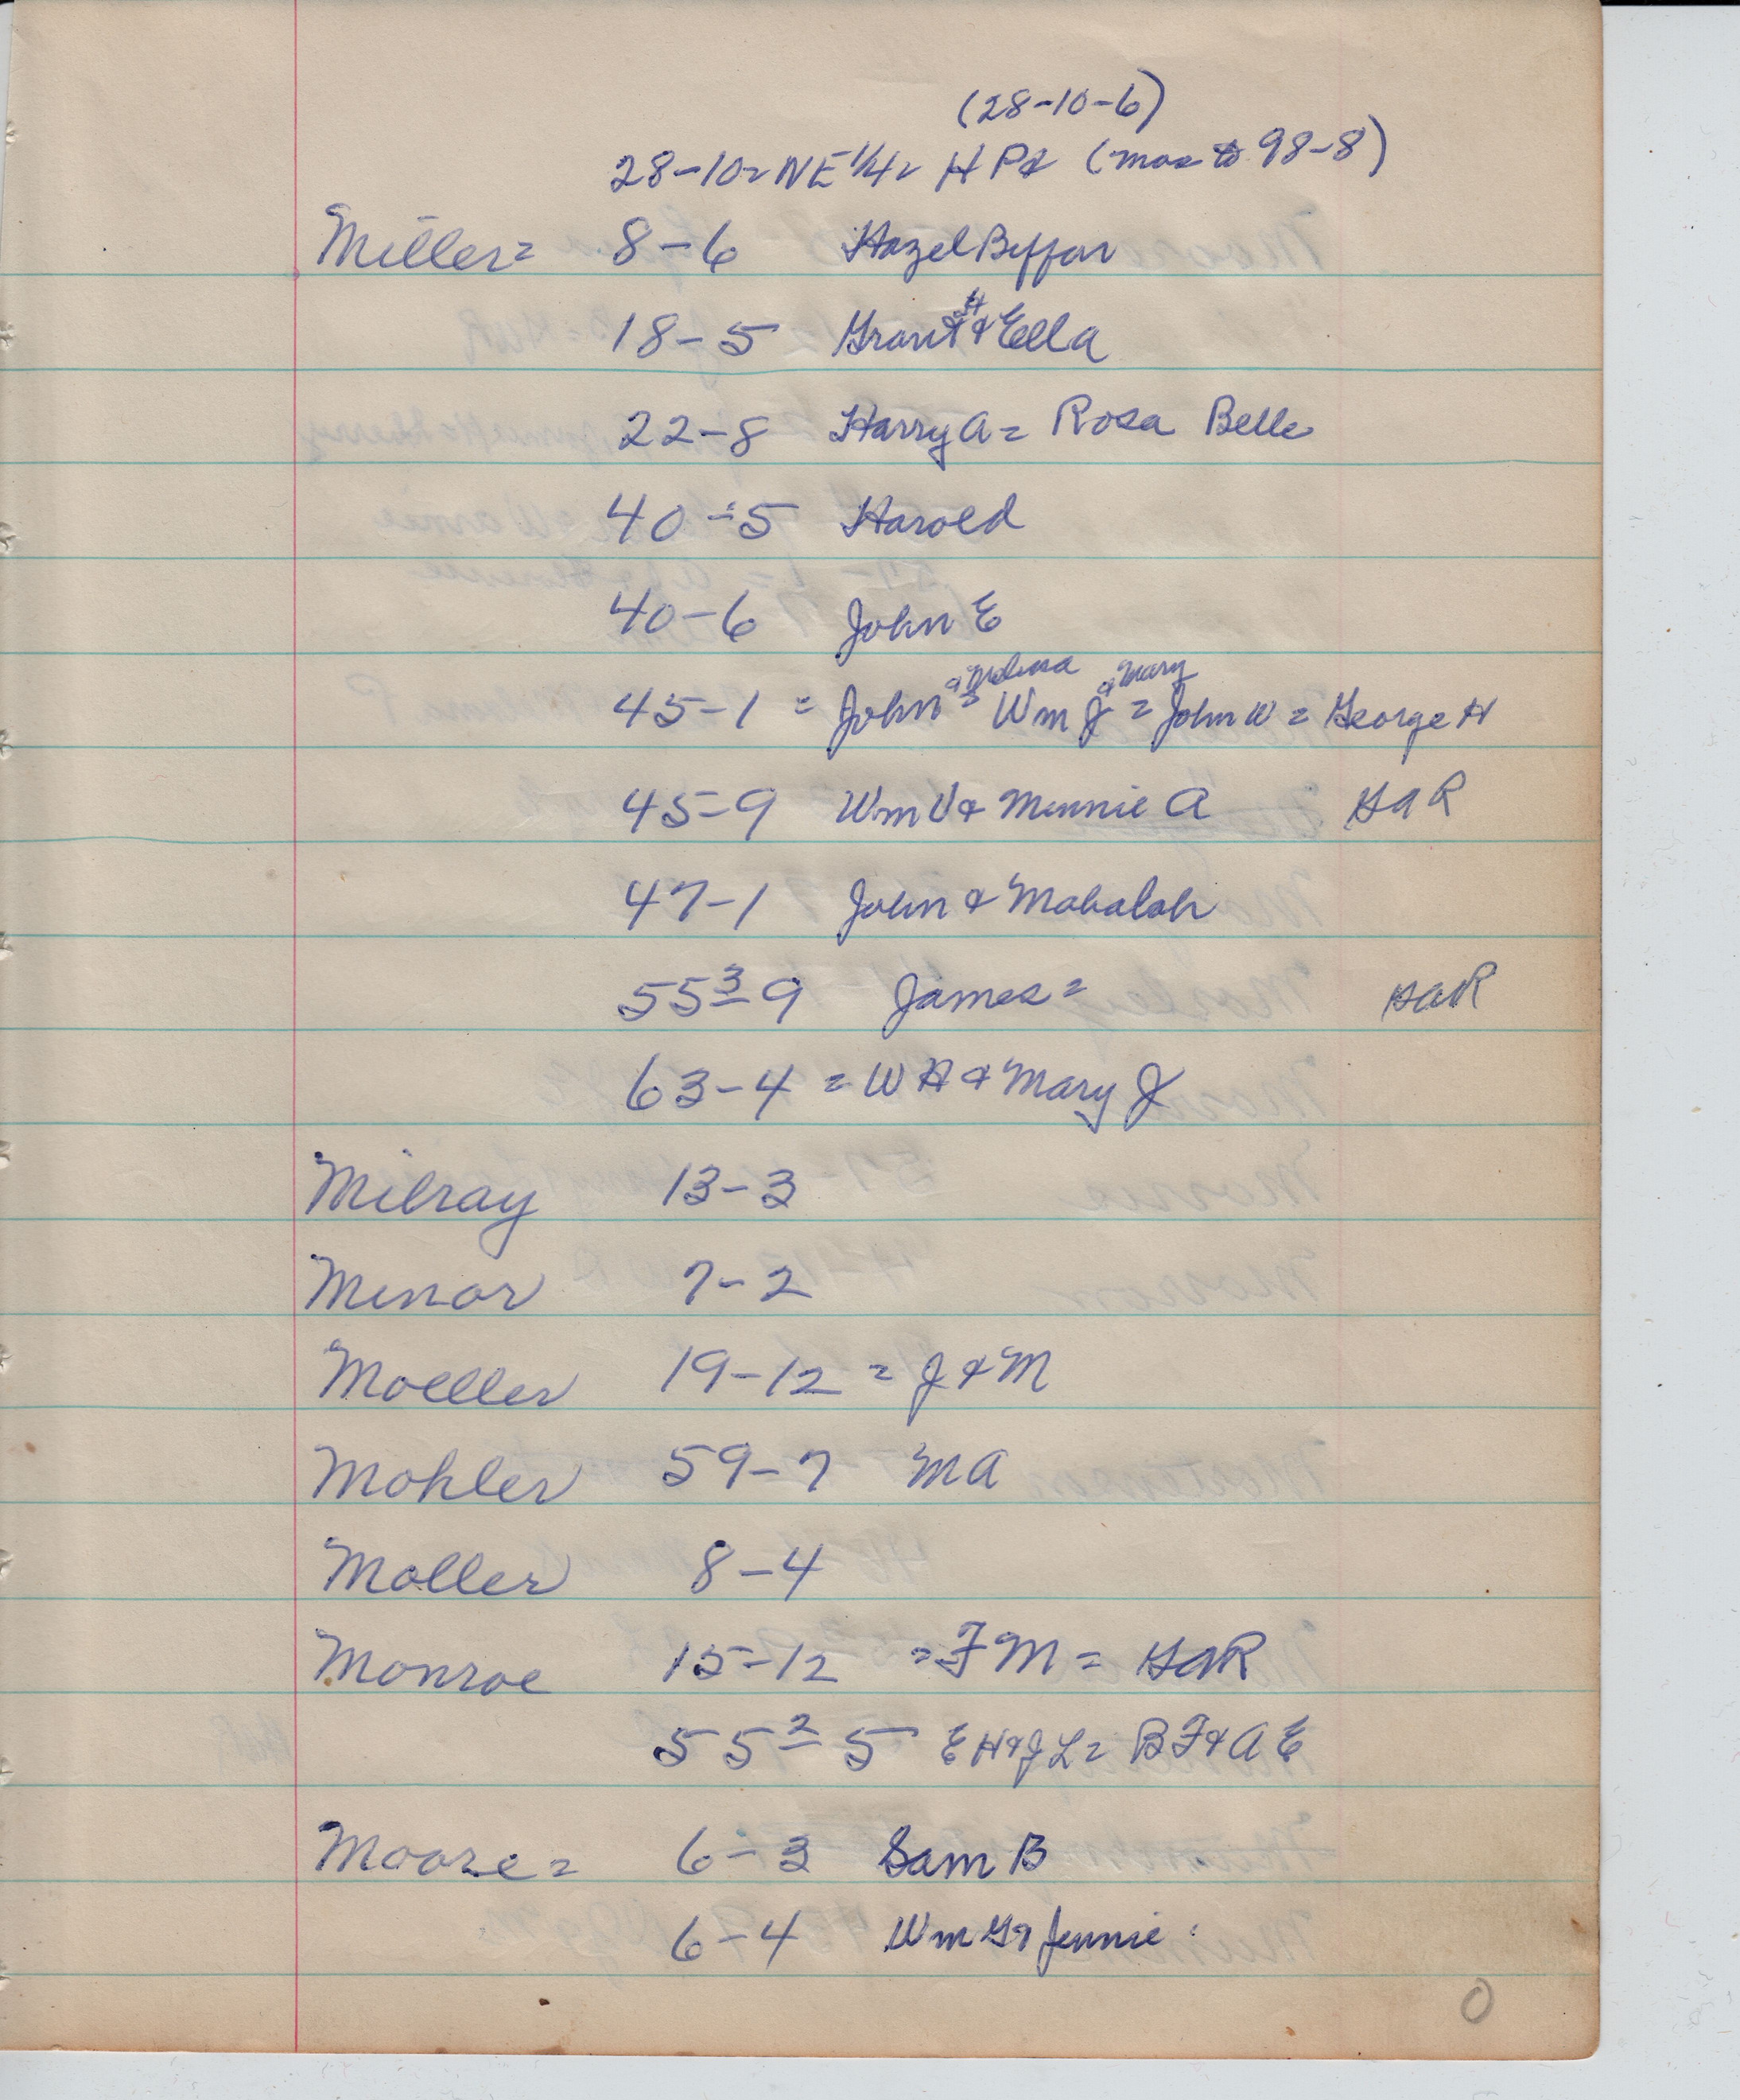 (28-10-6)
28-10= NE 1/4= H P & (mos to 98-8)
Miller= 8-6 Hazel Beffar
18-5 Grant H & Ella
22-8 Harry A = Rosa Belle
40-5 Harold
40-6 John E
& Melissa & Mary
45-1 = John = Wm J = John W = George H
45-9 Wm V & Minnie A GAR
47-1 John & Mahalah
55 3-9 James = GAR
63-4 = W H & Mary J
Milray 13-3
Minor 7-2
Moeller 19-12 = J & M
Mohler 59-7 M A
Moller 8-4
Monroe 15-12 = F M = GAR
55 2-5 E H & J L = B F & A E
Moore= 6-3 Sam B
6-4 Wm G & Jennie
0